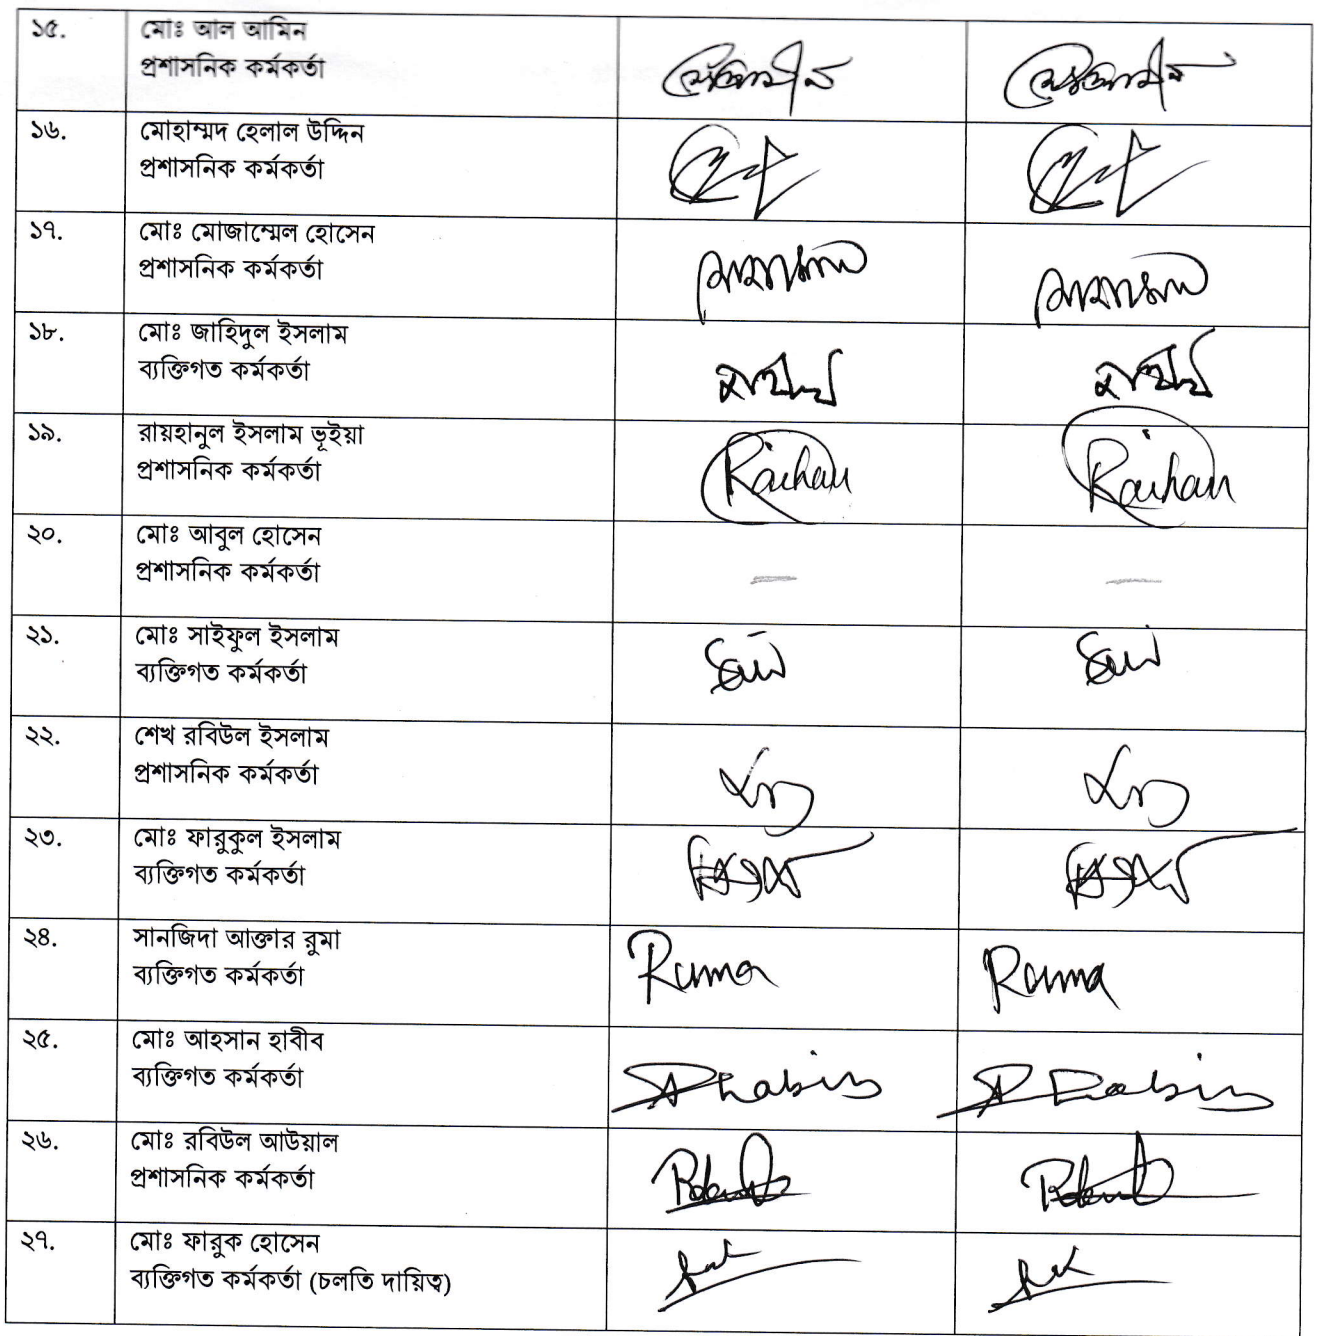 ১৫.
মোঃ আল আমিন
প্রশাসনিক কর্মকর্তা
১৬.
মোহাম্মদ হেলাল উদ্দিন
প্রশাসনিক কর্মকর্তা
১৭.
মোঃ মোজাম্মেল হোসেন
প্রশাসনিক কর্মকর্তা
১৮.
মোঃ জাহিদুল ইসলাম
ব্যক্তিগত কর্মকর্তা
১৯.
রায়হানুল ইসলাম ভূইয়া
প্রশাসনিক কর্মকর্তা
Raihan Raihan
২০.
মোঃ আবুল হোসেন
প্রশাসনিক কর্মকর্তা
২১.
মোঃ সাইফুল ইসলাম
ব্যক্তিগত কর্মকর্তা
২২.
শেখ রবিউল ইসলাম
প্রশাসনিক কর্মকর্তা
২৩.
মোঃ ফারুকুল ইসলাম
ব্যক্তিগত কর্মকর্তা
২৪.
সানজিদা আক্তার রুমা
ব্যক্তিগত কর্মকর্তা
Ruma Ruma
২৫.
মোঃ আহসান হাবীব
ব্যক্তিগত কর্মকর্তা
২৬.
মোঃ রবিউল আউয়াল
প্রশাসনিক কর্মকর্তা
২৭.
মোঃ ফারুক হোসেন
ব্যক্তিগত কর্মকর্তা (চলতি দায়িত্ব)